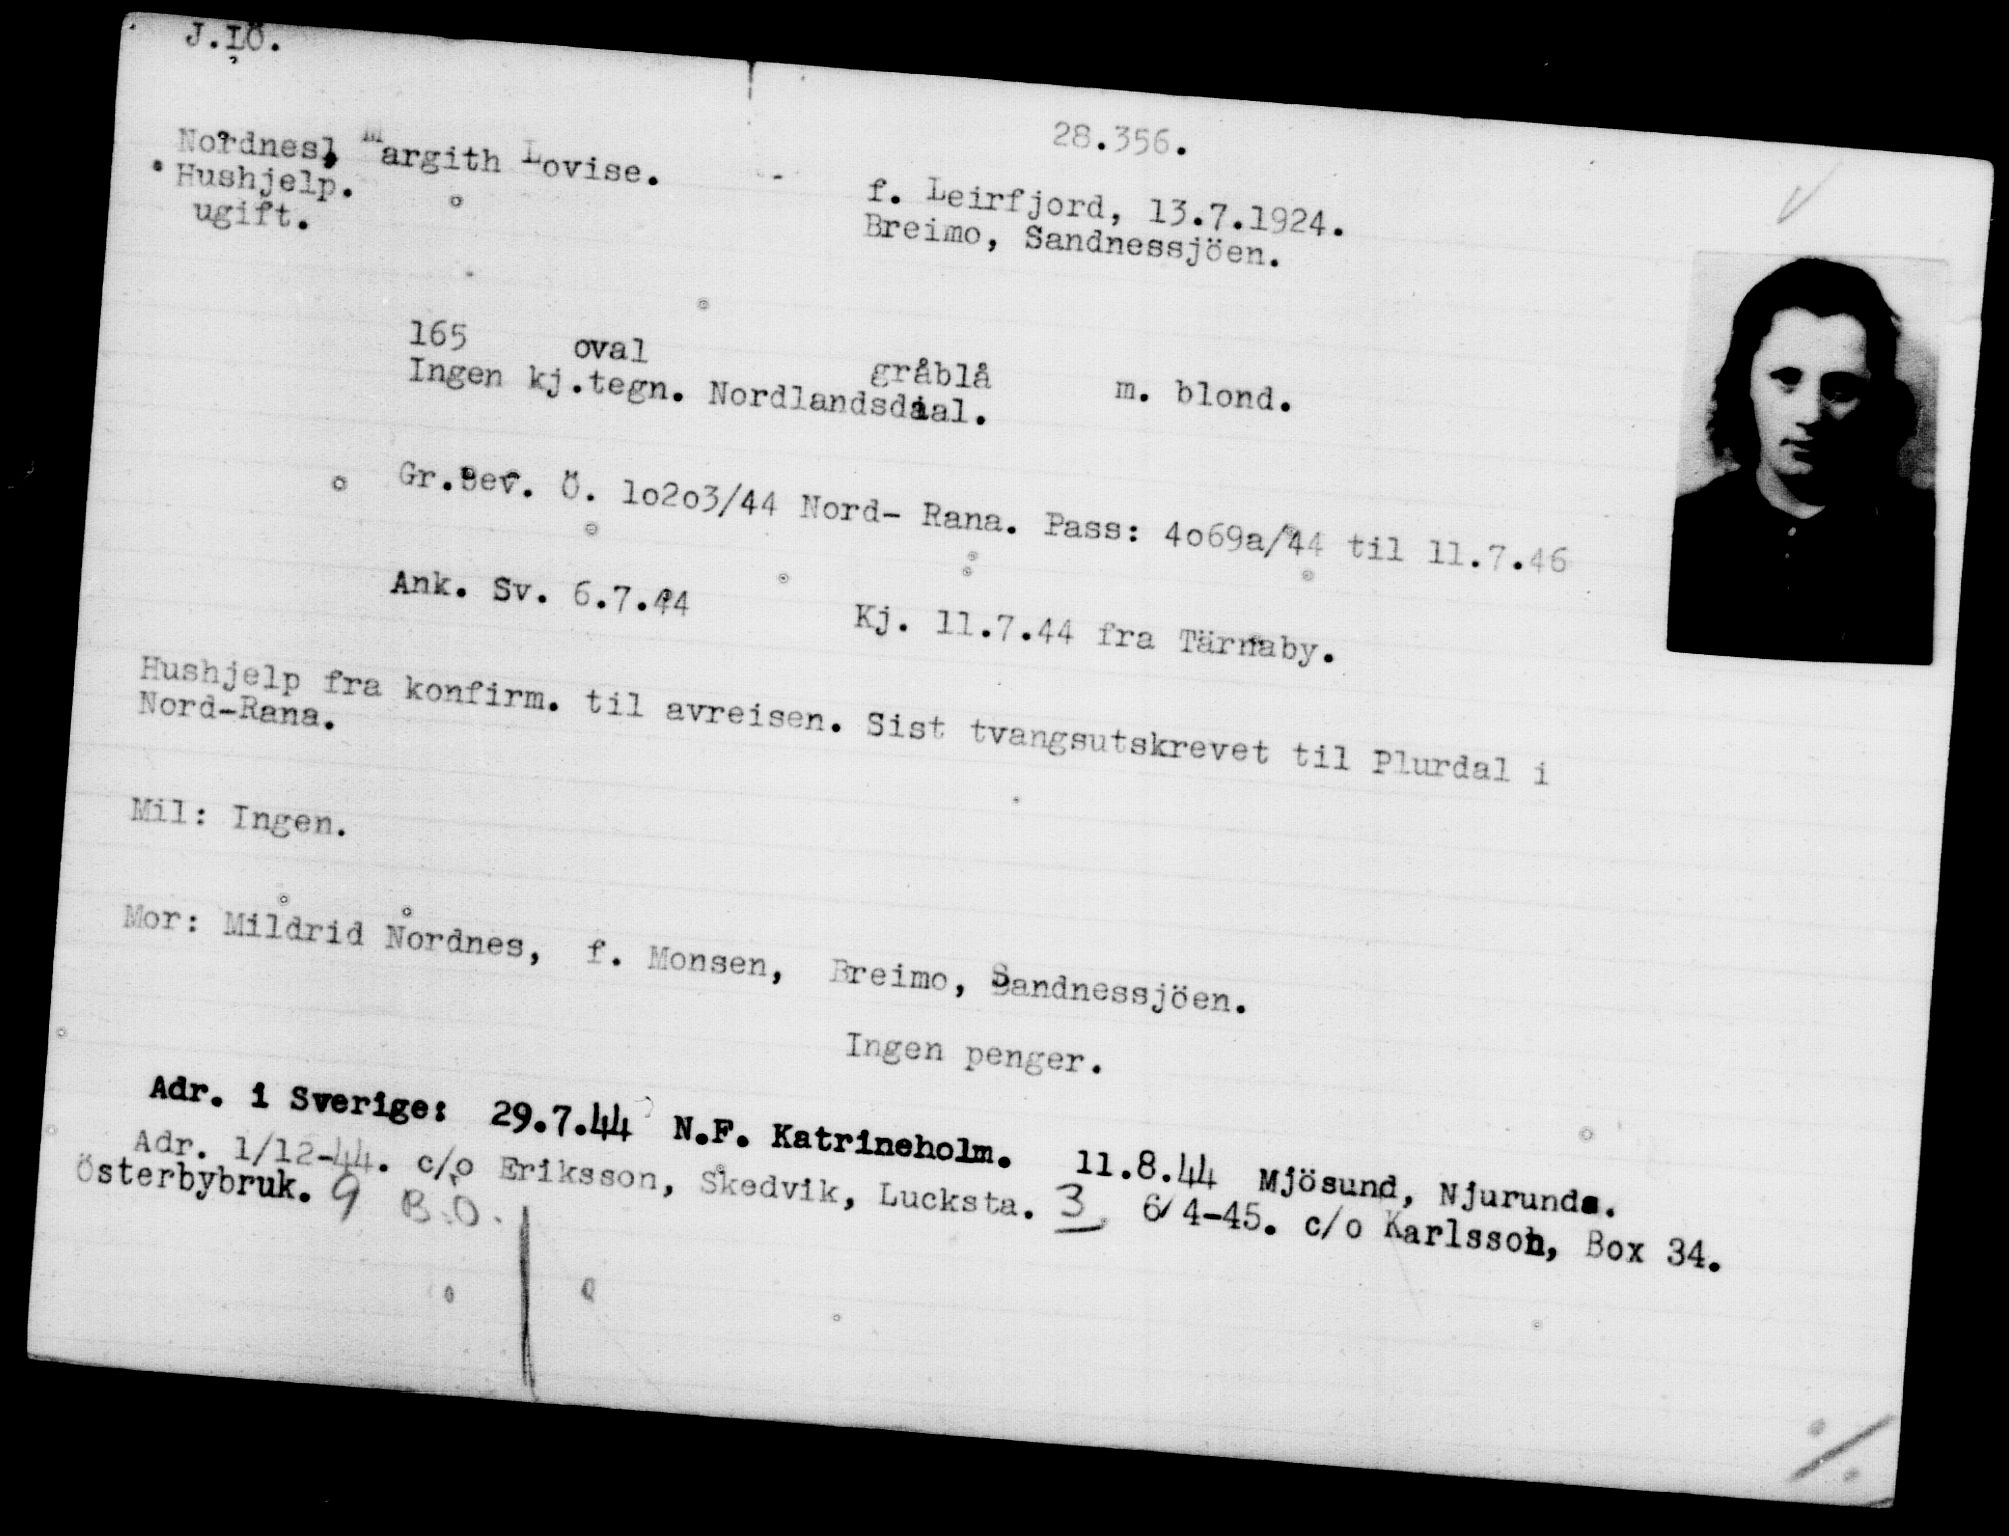 J.LÖ.
28.356.
Nordnes, Margith Lovise.
f. Leirfjord, 13.7.1924.
Hushjelp.
Breimo, Sandnessjöen.
ugift.
165 oval gråblå m. blond.
Ingen kj.tegn. Nordlandsdial.
Gr.Bev. Ö. 1o2o3/44 Nord- Rana. Pass: 4o69a/44 til 11.7.46
Ank. Sv. 6.7.44 Kj. 11.7.44 fra Tärnaby.
Hushjelp fra konfirm. til avreisen. Sist tvangsutskrevet til Plurdal i
Nord-Rana.
Mil: Ingen.
Mor: Mildrid Nordnes, f. Monsen, Breimo, Sandnessjöen.
Ingen penger.
Adr. i Sverige: 29.7.44 N.F. Katrineholm. 11.8.44 Mjösund, Njurunda.
Adr. 1/12-44. c/o Eriksson, Skedvik, Lucksta. 3 6/4-45. c/o Karlsson, Box 34.
Österbybruk. 9 B.Ö.